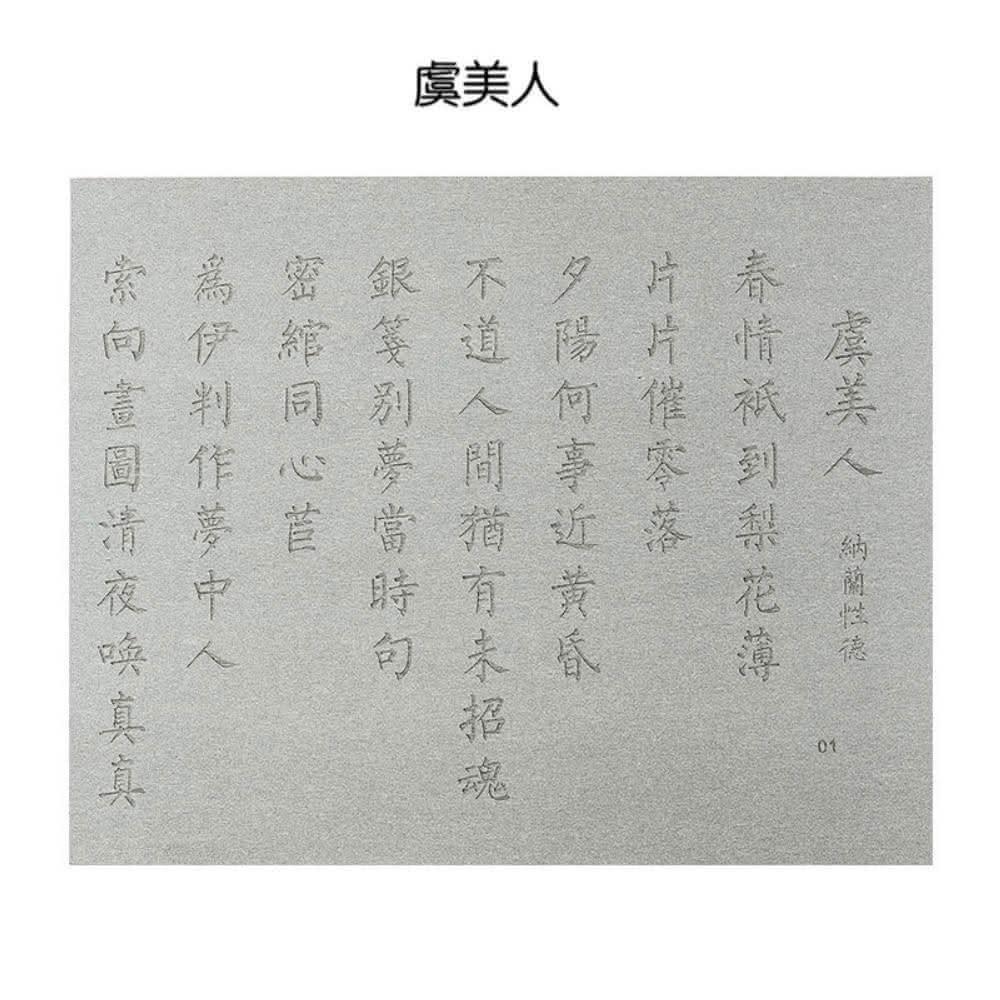 虞美人
虞美人 納蘭性德
春情衹到梨花薄
片片催零落
夕陽何事近黄昏
不道人間猶有未招魂
銀箋別夢當時句
密綰同心苣
為伊判作夢中人
索向畫圖清夜喚真真
01